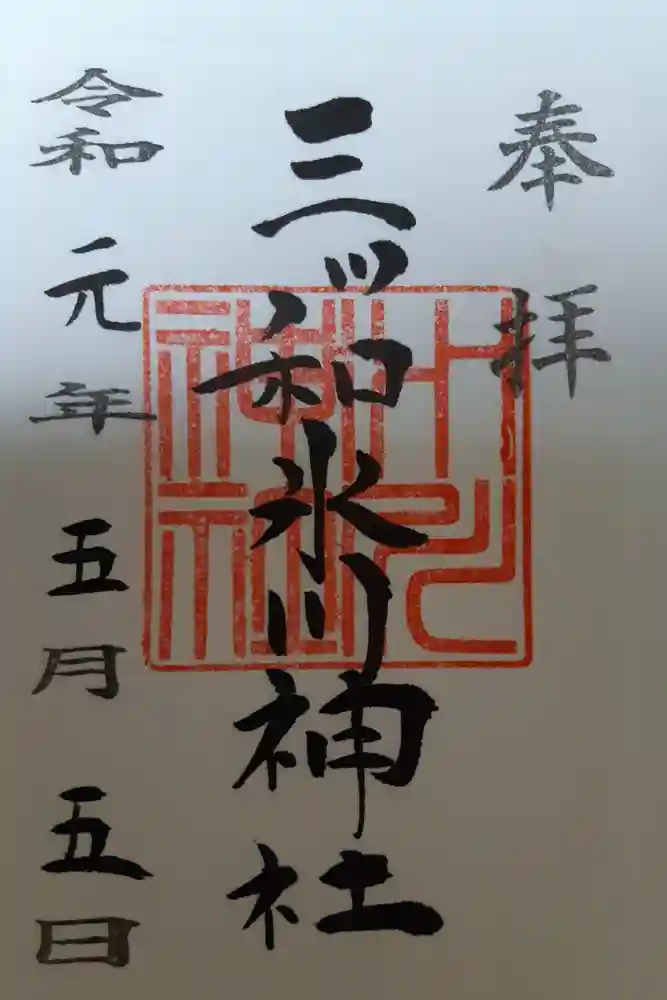 奉拝
三ツ和氷川神社
令和元年五月五日